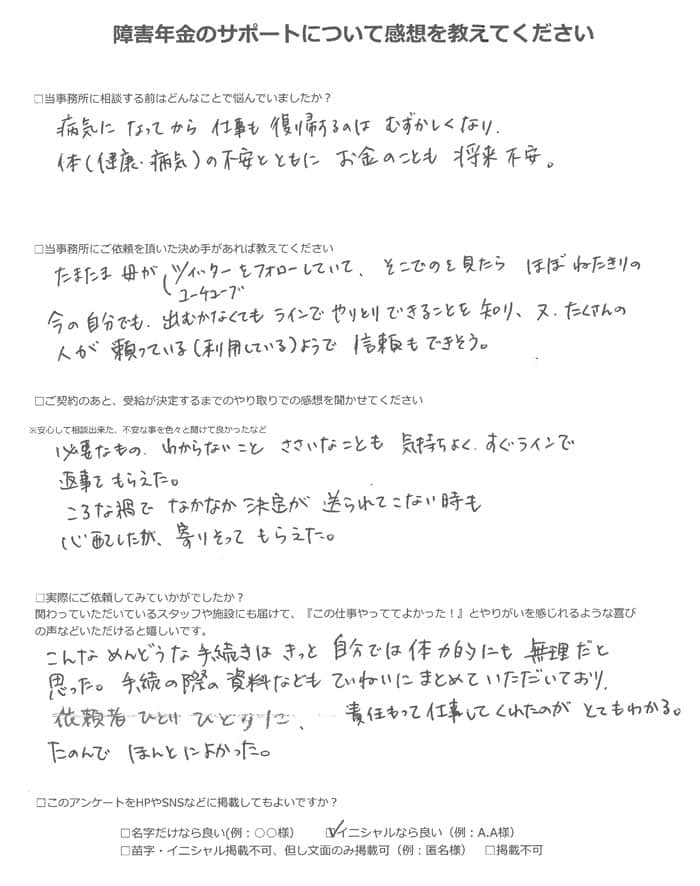 障害年金のサポートについて感想を教えてください
□当事務所に相談する前はどんなことで悩んでいましたか?
病気に なってから 仕事も 復帰するのは むずかしくなり、
体(健康・病気)の不安とともに お金のことも 将来 不安。
□当事務所にご依頼を頂いた決め手があれば教えてください
たまたま 母が (ツイッターをフォローしていて、そこでのを見たら ほぼ ねたきりの
ユーチューブ
今の自分でも、出むかなくても ラインで やりとり できることを 知り、又、たくさんの
人が 頼っている(利用している)ようで 信頼もできそう。
□ご契約のあと、受給が決定するまでのやり取りでの感想を聞かせてください
※安心して相談出来た、不安な事を色々と聞けて良かったなど
必要なもの、わからないこと ささいなことも 気持ちよく、すぐラインで
返事を もらえた。
ころな禍で なかなか 決定が 送られてこない時も
心配したが、寄りそって もらえた。
□実際にご依頼してみていかがでしたか?
関わっていただいているスタッフや施設にも届けて、『この仕事やっててよかった!』とやりがいを感じれるような喜び
の声などいただけると嬉しいです。
こんな めんどうな 手続きは きっと 自分では 体力的にも 無理だと
思った。手続の際の資料なども ていねいに まとめて いただいており、
依頼者 ひとり ひとりに、責任もって 仕事してくれたのが とてもわかる。
たのんで ほんとによかった。
□このアンケートをHPやSNSなどに掲載してもよいですか?
□名字だけなら良い(例:○○様) ☑イニシャルなら良い(例:A.A様)
□苗字・イニシャル掲載不可、但し文面のみ掲載可(例:匿名様) □掲載不可